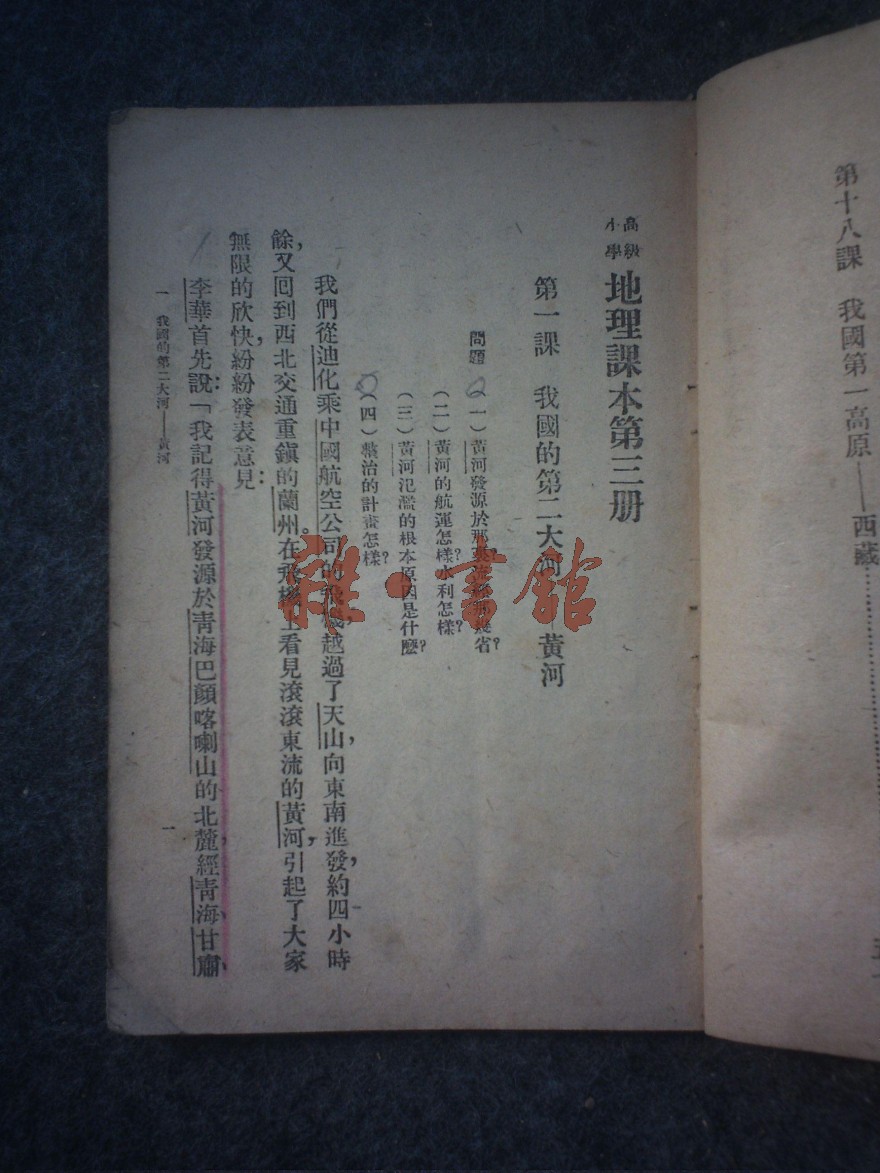 第十八課　我國第一高原——西藏
高級
小學
地理課本第三册
第一課　我國的第二大河　黃河
問題
一）黃河發源於那
省？
（二）黃河的航運怎樣？水利怎樣？
（三）黃河氾濫的根本原因是什麼？
（四）整治的計畫怎樣？
我們從迪化乘中國航空公司的飛機，越過了天山，向東南進發，約四小時
餘，又囘到西北交通重鎮的蘭州。在飛機上看見滾滾東流的黃河，引起了大家
無限的欣快，紛紛發表意見：
李華首先說：「我記得黃河發源於青海巴顏喀喇山的北麓，經青海、甘肅、
一　我國的第二大河——黃河
一
雜·書館